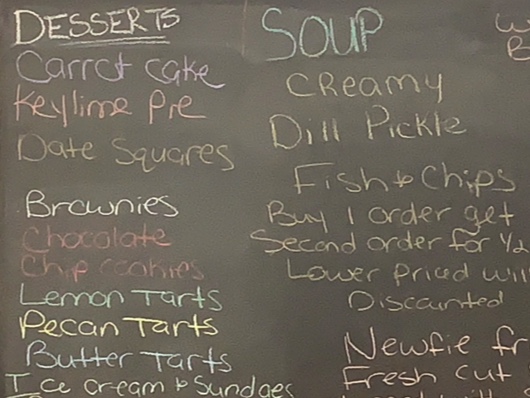 DESSERTS
Carrot cake
Keylime Pie
Date Squares
Brownies
Chocolate
Chip cookies
Lemon Tarts
Pecan Tarts
Butter Tarts
Ice cream & Sundaes
SOUP
Creamy
Dill Pickle
Fish & Chips
Buy 1 order get
Second order for 1/2
Lower Priced will
Discounted
Newfie fr
Fresh cut